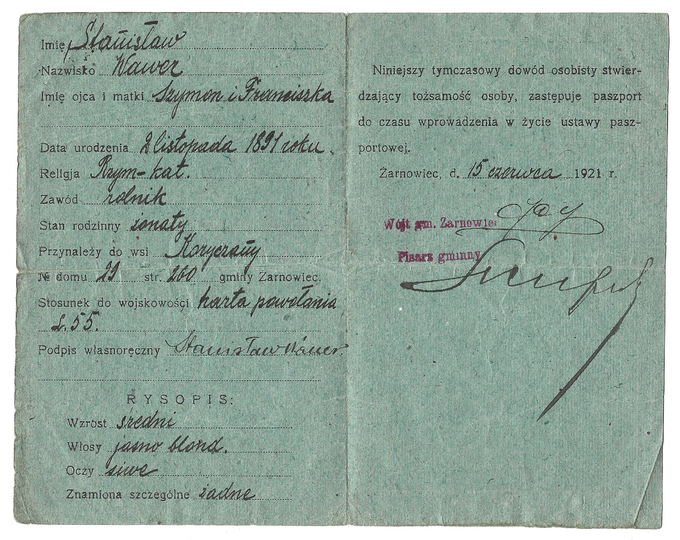 Imię Stanisław
Nazwisko Wawer
Imię ojca i matki Szymon i Franciszka
Data urodzenia 2 listopada 1891 roku.
Religja Rzym-kat.
Zawód rolnik
Stan rodzinny żonaty
Przynależy do wsi Koryczany
№ domu 29 str. 260 gminy Żarnowiec.
Stosunek do wojskowości karta powołania
L. 55.
Podpis własnoręczny Stanisław Wawer
RYSOPIS:
Wzrost średni
Włosy jasno blond.
Oczy siwe
Znamiona szczególne żadne
Niniejszy tymczasowy dowód osobisty stwier-
dzający tożsamość osoby, zastępuje paszport
do czasu wprowadzenia w życie ustawy pasz-
portowej.
Żarnowiec, d. 15 czerwca 1921 r.
Wójt gm. Żarnowiec
Pisarz gminny